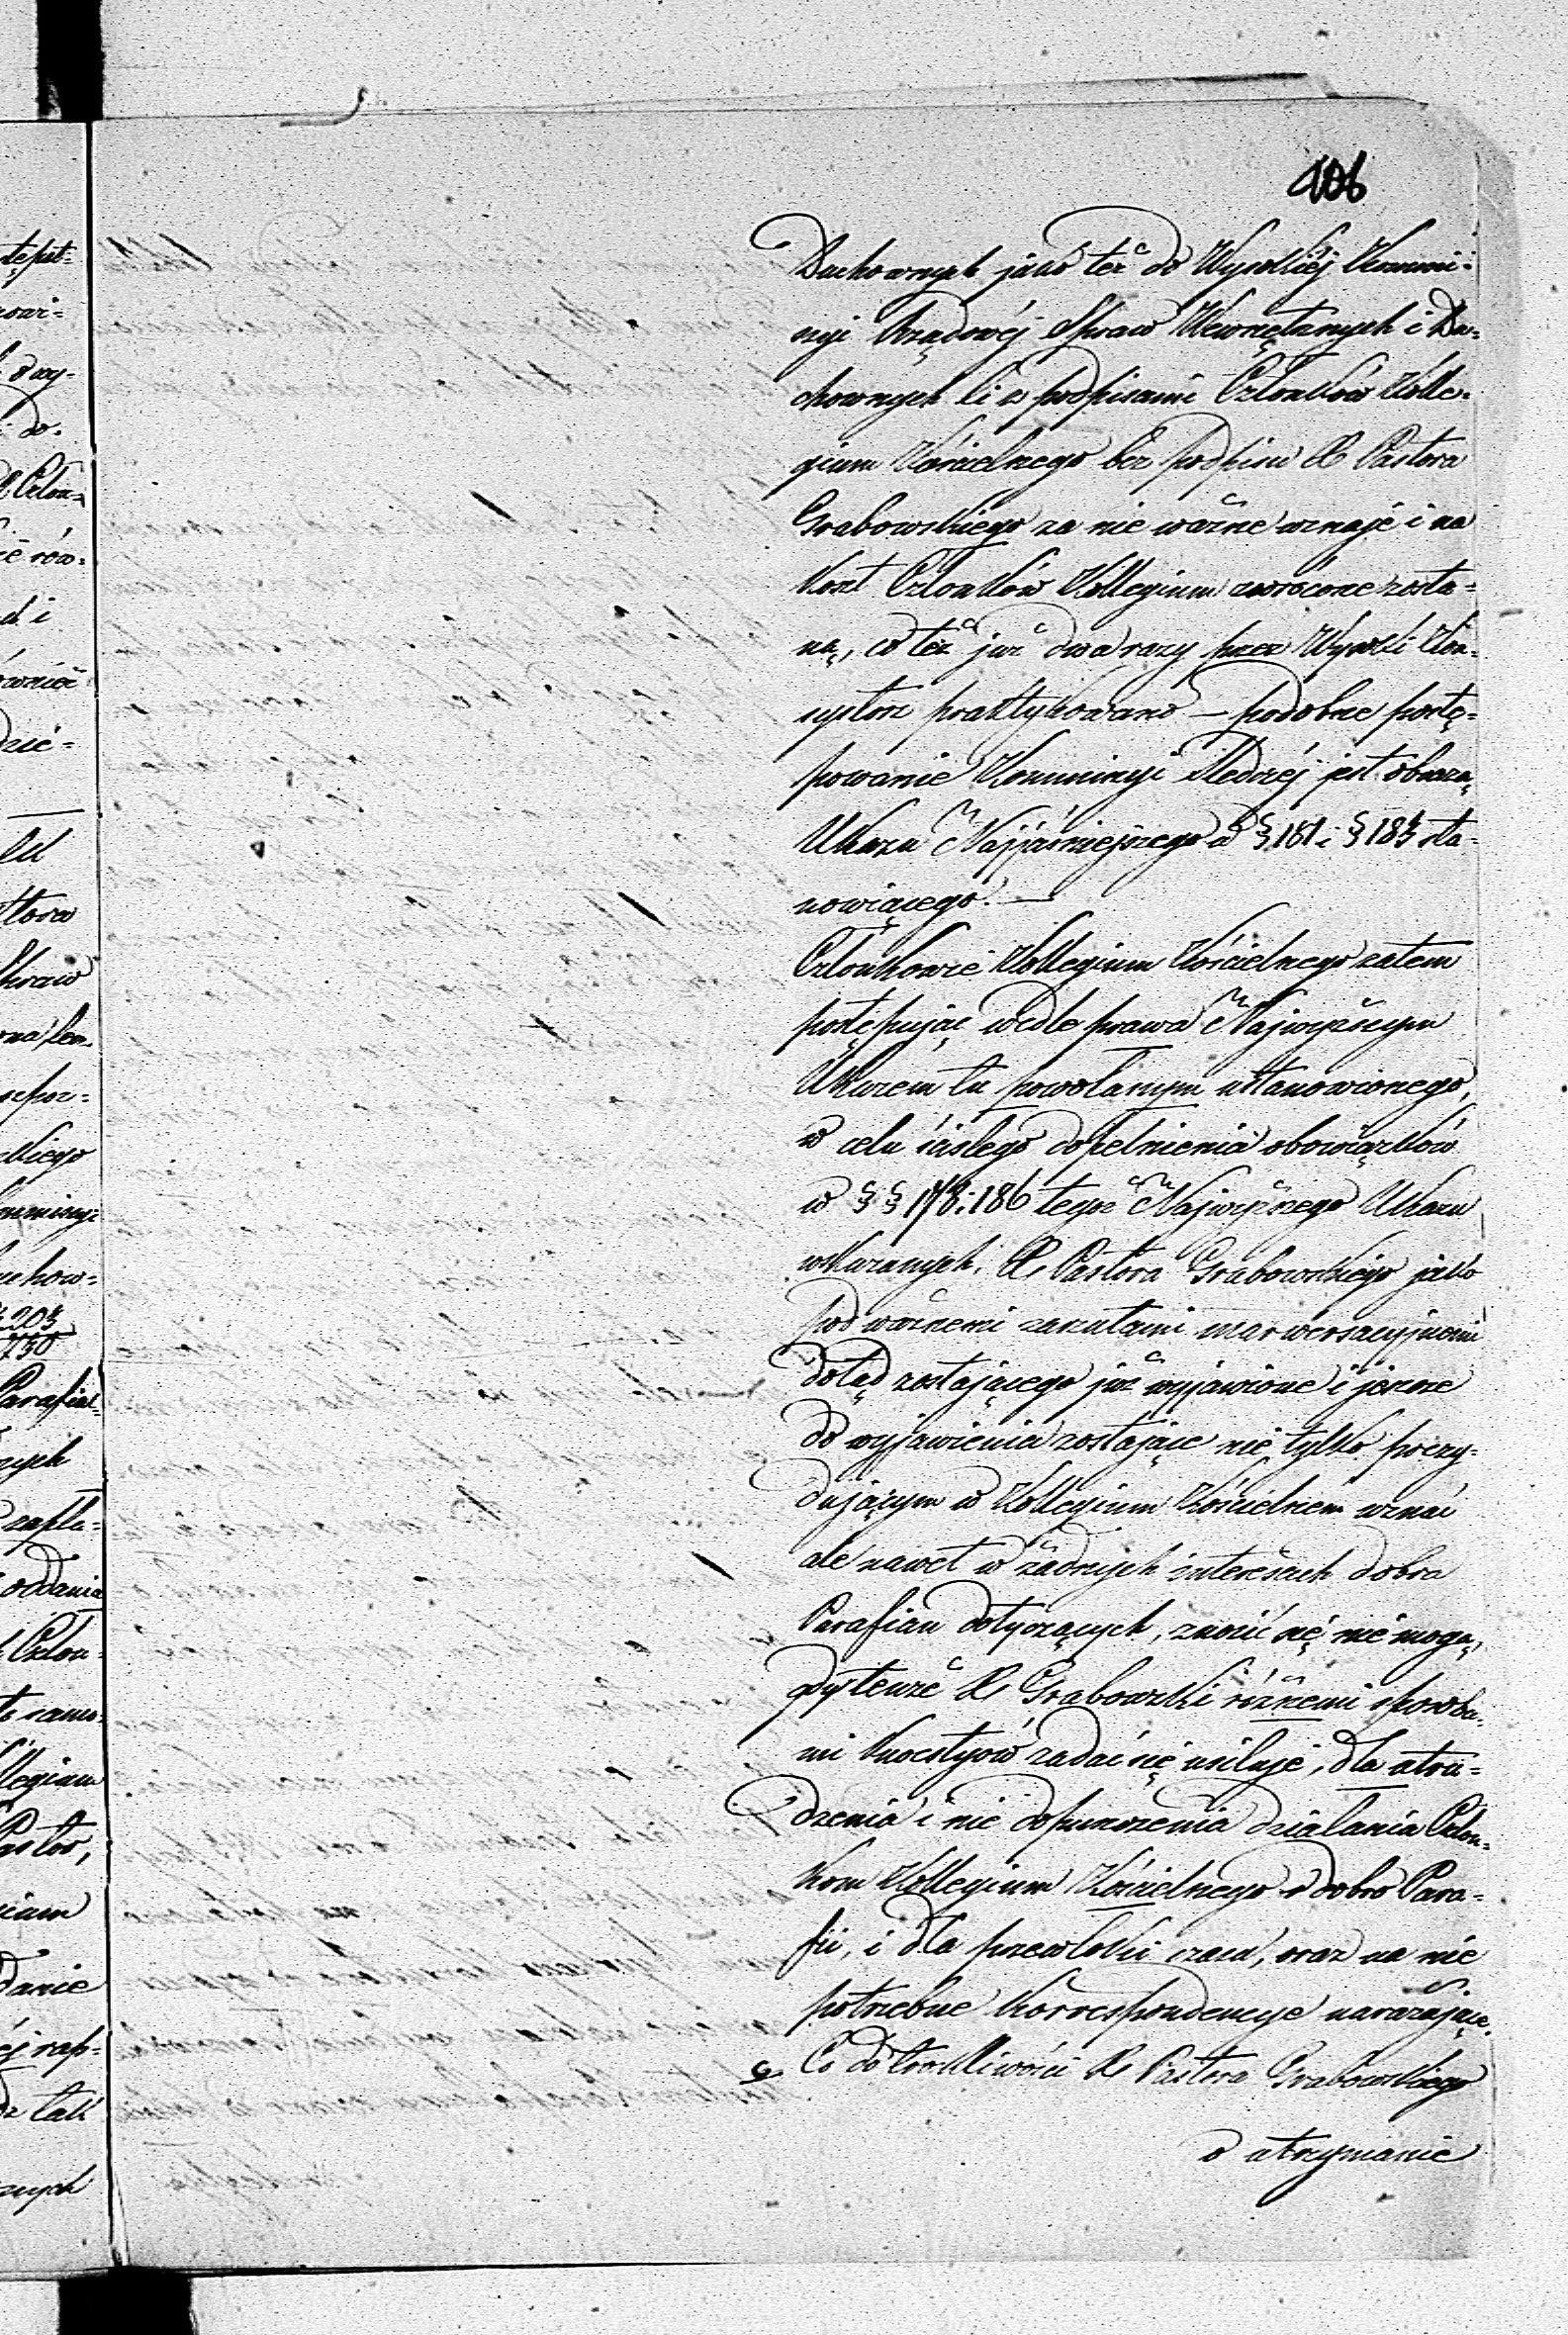 106
Duchownych jako też do Wysokiéj Kommi-
syi Rządowéj Spraw Wewnętrznych i Du-
chownych li z podpisami Członków Kolle-
gium Kościelnego bez podpisu X Pastora
Grabowskiego za nie ważne uznaje i na
koszt Członków Kollegium zwrócone zosta-
ną, co też już dwa razy przez Wysoki Kon-
systorz praktykowano – podobne postę-
powanie Kommissyi Śledczéj jest obrazą
Ukazu Najjaśniejszego w § 181 i § 183 sta-
nowiącego. —
Członkowie Kollegium Kościelnego zatem
postępując wedle prawa Najwyższym
Ukazem tu powołanym ustanowionego,
w celu ścisłego dopełnienia obowiązków
w §§ 178: 186 tegoż Najwyższego Ukazu
wskazanych, X Pastora Grabowskiego jako
pod ważnemi zarzutami marwersacyjnemi
dotąd zostającego już wyjawione i jeszcze
do wyjawienia zostające nie tylko prezy-
dującym w Kollegium Kościelnem uznać
ale nawet w żadnych interesach dobra
Parafian dotyczących, znosić się nie mogą,
gdy tenże X Grabowski różnemi sposoba-
mi kwestyów zadać się usiłuje, dla utru-
dzenia i nie dopuszczenia działania Człon-
kom Kollegium Kościelnego o dobro Para-
fii, i dla przewłoki czasu, oraz na nie
potrzebne korrespondencye narażając.
Co do troskliwości X Pastora Grabowskiego
o utrzymanie
tępst-
d wy-
do
Człon-
rów-
d i
ównież
dzié-
stora
Spraw
skiego
ommisyi
uchow-
203
750
Parafial-
nych
zapła-
oddania
Człon-
to samo
llegium
Pastor,
gium
danie
éj rap-
tak
znych